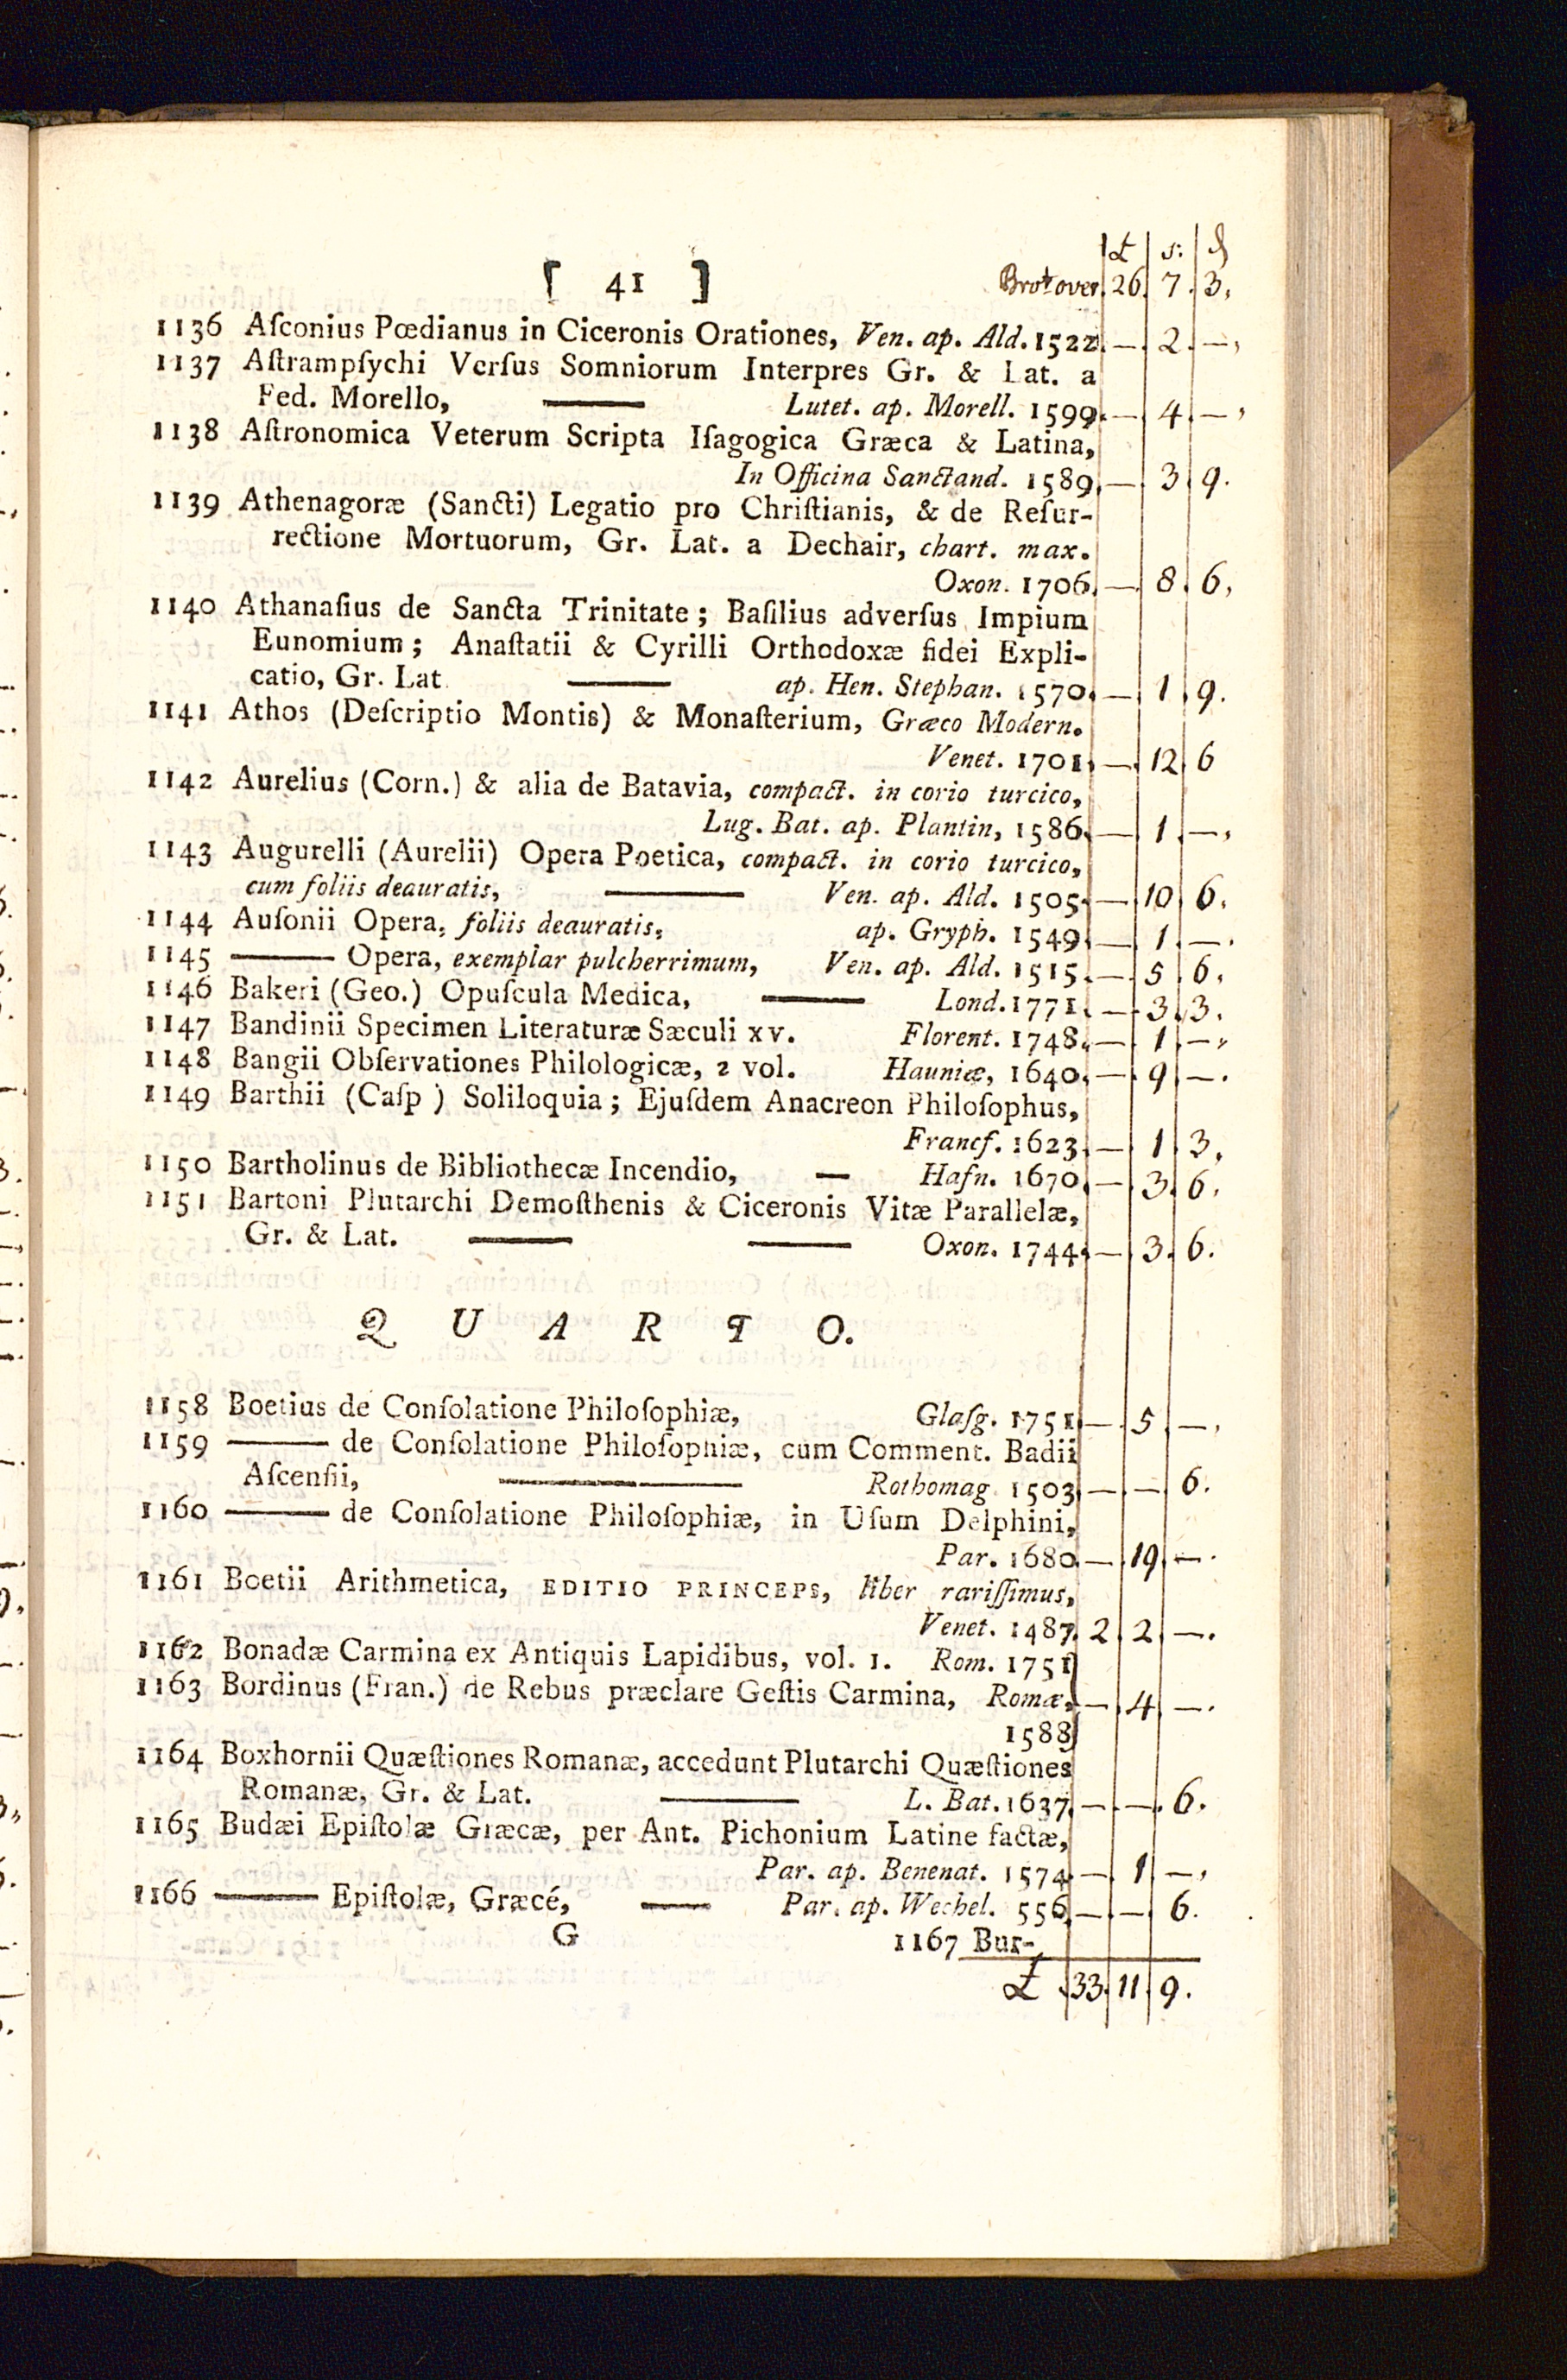 £ s: d
[ 41 ] Brot over 26. 7. 3,
1136 Aſconius Pœdianus in Ciceronis Orationes, Ven. ap. Ald. 1522. — 2. —,
1137 Aſtrampſychi Verſus Somniorum Interpres Gr. & Lat. a
Fed. Morello, —— Lutet. ap. Morell. 1599. — 4. —,
1138 Aſtronomica Veterum Scripta Iſagogica Græca & Latina,
In Officina Sanctand. 1589, — 3 9.
1139 Athenagoræ (Sancti) Legatio pro Chriſtianis, & de Reſur-
rectione Mortuorum, Gr. Lat. a Dechair, chart. max.
Oxon. 1706. — 8. 6,
1140 Athanaſius de Sancta Trinitate; Baſilius adverſus Impium
Eunomium; Anaſtatii & Cyrilli Orthodoxæ fidei Expli-
catio, Gr. Lat. —— ap. Hen. Stephan. 1570. — 1. 9.
1141 Athos (Deſcriptio Montis) & Monaſterium, Græco Modern.
Venet. 1701. — 12. 6
1142 Aurelius (Corn.) & alia de Batavia, compact. in corio turcico,
Lug. Bat. ap. Plantin, 1586. — 1. —,
1143 Augurelli (Aurelii) Opera Poetica, compact. in corio turcico,
cum foliis deauratis, —— Ven. ap. Ald. 1505. — 10. 6.
1144 Auſonii Opera, foliis deauratis, ap. Gryph. 1549. — 1. —.
1145 —— Opera, exemplar pulcherrimum, Ven. ap. Ald. 1515. — 5. 6,
1146 Bakeri (Geo.) Opuſcula Medica, —— Lond. 1771. — 3. 3.
1147 Bandinii Specimen Literaturæ Sæculi xv. Florent. 1748. — 1. —,
1148 Bangii Obſervationes Philologicæ, 2 vol. Hauniæ, 1640. — 9 —.
1149 Barthii (Caſp ) Soliloquia; Ejuſdem Anacreon Philoſophus,
Francf. 1623. — 1. 3,
1150 Bartholinus de Bibliothecæ Incendio, — Hafn. 1670. — 3. 6,
1151 Bartoni Plutarchi Demoſthenis & Ciceronis Vitæ Parallelæ,
Gr. & Lat. —— —— Oxon. 1744. — 3. 6.
Q U A R T O.
1158 Boetius de Conſolatione Philoſophiæ, Glaſg. 1751. — 5. —,
1159 —— de Conſolatione Philoſophiæ, cum Comment. Badii
Aſcenſii, —— Rothomag. 1503. — — 6.
1160 —— de Conſolatione Philoſophiæ, in Uſum Delphini,
Par. 1680. — 19. —.
1161 Boetii Arithmetica, EDITIO PRINCEPS, liber rariſſimus,
Venet. 1487. 2. 2. —.
1162 Bonadæ Carmina ex Antiquis Lapidibus, vol. 1. Rom. 1751
1163 Bordinus (Fran.) de Rebus præclare Geſtis Carmina, Romæ, — 4. —.
1588
1164 Boxhornii Quæſtiones Romanæ, accedunt Plutarchi Quæſtiones
Romanæ, Gr. & Lat. —— L. Bat. 1637. — —. 6.
1165 Budæi Epiſtolæ Græcæ, per Ant. Pichonium Latine factæ,
Par. ap. Benenat. 1574. — 1. —,
1166 —— Epiſtolæ, Græcé, —— Par. ap. Wechel. 556. — — 6.
G 1167 Bur-
£ 33. 11. 9.